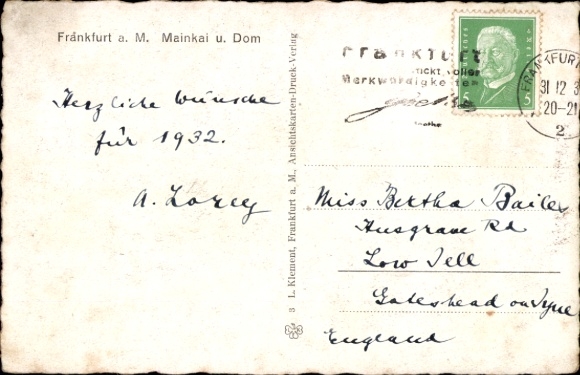 Frankfurt a. M. Mainkai u. Dom
Herzliche Wünsche
für 1932.
A. Lorey
3 L. Klement, Frankfurt a. M., Ansichtskarten-Druck-Verlag
Frankfurt
steckt voller
Merkwürdigkeiten
Goethe
Deutsches Reich
5 5
FRANKFURT
31 12 3
20-21
2
Miss Bertha Bailes
Musgrave Rd
Low Fell
Gateshead on Tyne
England